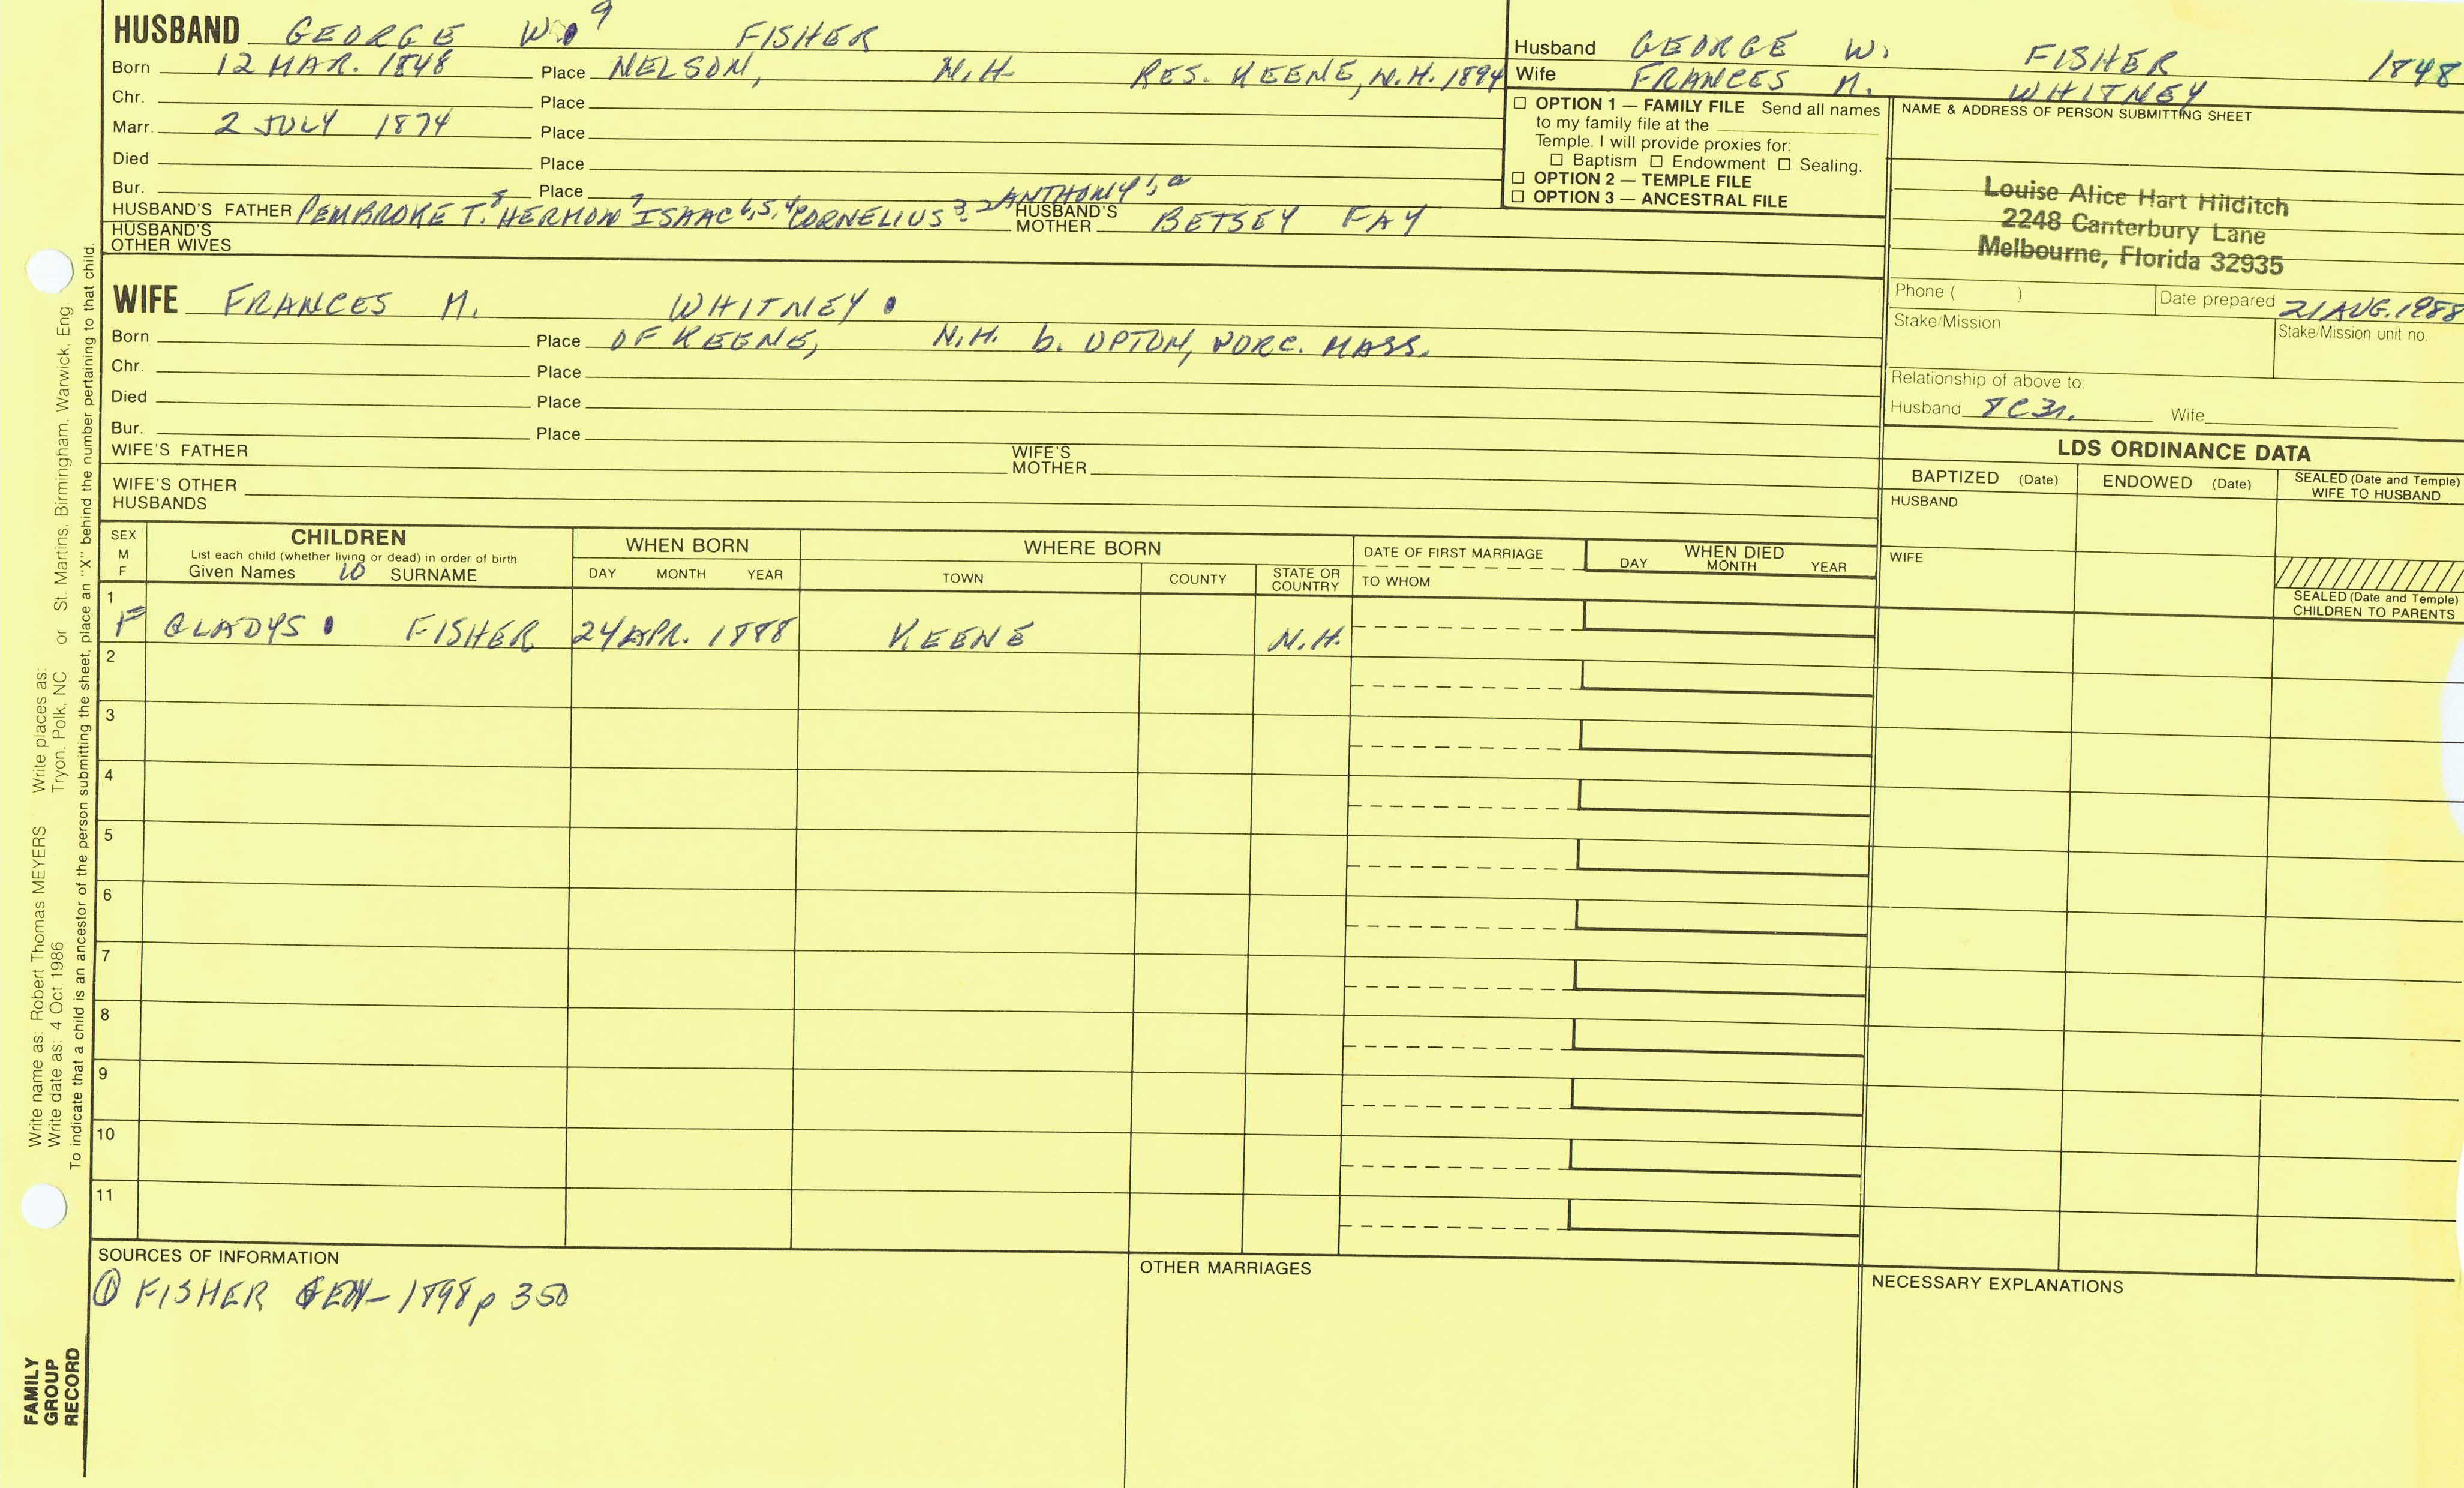 HUSBAND GEORGE W. 9 FISHER
Born 12 MAR. 1848 Place NELSON, N.H. RES. KEENE, N.H. 1894
Chr. Place
Marr. 2 JULY 1874 Place
Died Place
Bur. Place
HUSBAND'S FATHER PEMBROKE T.8 HERMON7 ISAAC6,5,4 CORNELIUS3,2 ANTHONY1,a HUSBAND'S MOTHER BETSEY FAY
HUSBAND'S OTHER WIVES
WIFE FRANCES M. WHITNEY
Born Place OF KEENE, N.H. b. UPTON, WORC. MASS.
Chr. Place
Died Place
Bur. Place
WIFE'S FATHER WIFE'S MOTHER
WIFE'S OTHER HUSBANDS
Husband GEORGE W. FISHER 1848
Wife FRANCES M. WHITNEY
☐ OPTION 1 — FAMILY FILE Send all names
to my family file at the
Temple. I will provide proxies for:
☐ Baptism ☐ Endowment ☐ Sealing.
☐ OPTION 2 — TEMPLE FILE
☐ OPTION 3 — ANCESTRAL FILE
NAME & ADDRESS OF PERSON SUBMITTING SHEET
Louise Alice Hart Hilditch
2248 Canterbury Lane
Melbourne, Florida 32935
Phone ( ) Date prepared 21 AUG. 1988
Stake/Mission Stake/Mission unit no.
Relationship of above to:
Husband 8C3r. Wife
LDS ORDINANCE DATA
BAPTIZED (Date) ENDOWED (Date) SEALED (Date and Temple) WIFE TO HUSBAND
HUSBAND
WIFE
SEALED (Date and Temple) CHILDREN TO PARENTS
SEX M F
CHILDREN
List each child (whether living or dead) in order of birth
Given Names 10 SURNAME
WHEN BORN
DAY MONTH YEAR
WHERE BORN
TOWN COUNTY STATE OR COUNTRY
DATE OF FIRST MARRIAGE
TO WHOM
WHEN DIED
DAY MONTH YEAR
1 F GLADYS FISHER 24 APR. 1888 KEENE N.H.
2
3
4
5
6
7
8
9
10
11
SOURCES OF INFORMATION
① FISHER GEN- 1898 p 350
OTHER MARRIAGES
NECESSARY EXPLANATIONS
Write name as: Robert Thomas MEYERS Write places as:
Write date as: 4 Oct 1986 Tryon, Polk, NC or St. Martins, Birmingham, Warwick, Eng
To indicate that a child is an ancestor of the person submitting the sheet, place an "X" behind the number pertaining to that child.
FAMILY
GROUP
RECORD